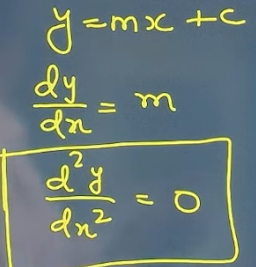 y = mx + c
dy/dx = m
d²y/dx² = 0